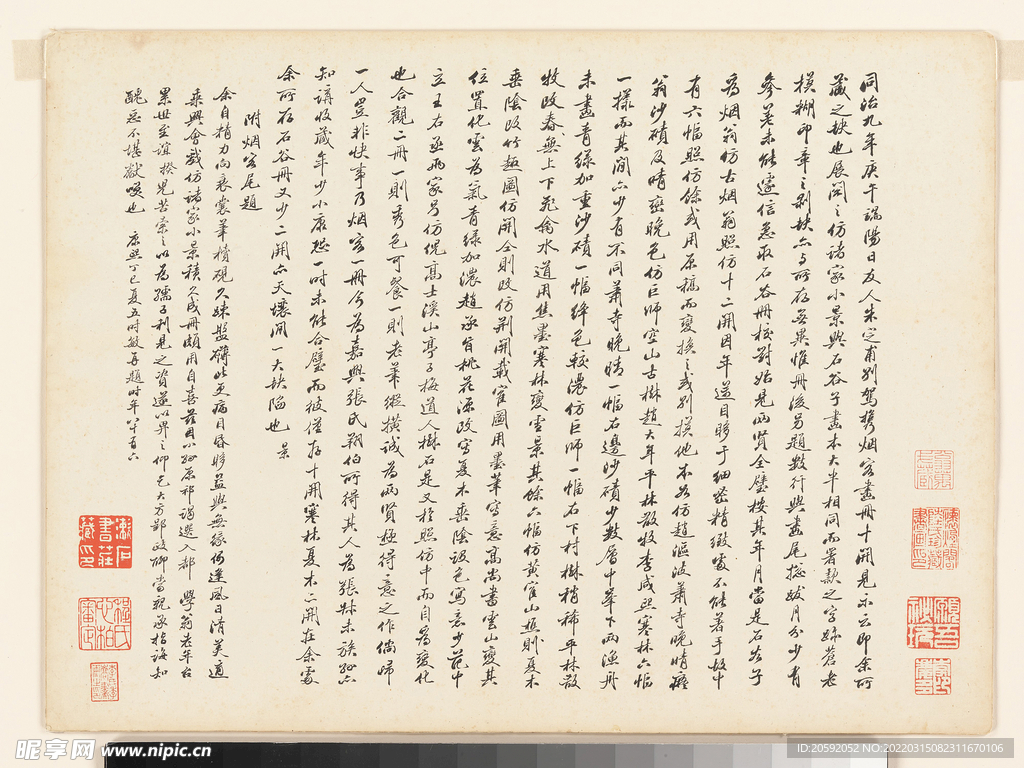 同治九年庚午端陽日友人朱定甫別駕攜烟客畫冊十開見示云即余所
藏之缺也展閱之仿諸家小景與石谷子畫本大半相同而署款之字姊蒼老
模糊印章之剝缺亦与所存無異惟冊後另題數行與畫尾搃跋月分少有
參差未能遽信急取石谷冊校對始見兩賢全璧按其年月當是石谷子
為烟翁仿古烟翁照仿十二開因年邁目眵于細密精緻處不能著手故中
有六幅照仿餘或用原稿而變換之或別摸他本如仿趙漚波蕭寺晚晴癡
翁沙磧及晴巒晚色仿巨師空山古樹趙大年平林散牧李咸熙寒林六幅
一樣而其間亦少有不同蕭寺晚晴一幅石邊沙磧少數層中峯下兩漁舟
未畫青綠加重沙磧一幅絳色較濃仿巨師一幅石下村樹稍稀平林散
牧改春無上下飛禽水道用焦墨寒林變雪景其餘六幅仿黃崔山樵則夏木
垂陰改竹趣圖仿關仝則改仿荊關載寉圖用墨筆寫意高尚書雲山變其
位置化雲為氣青綠加濃趙承旨桃花源改寫夏木垂陰設色寫意少花中
立王右丞兩家另仿倪高士溪山亭子梅道人樹石是又於照仿中而自為變化
也合觀二冊一則秀色可餐一則老筆縱橫誠為兩賢極得意之作倘歸
一人豈非快事乃烟客一冊今為嘉興張氏翔伯所得其人為張叔未族孫亦
知講收藏年少小康恐一時未能合璧而彼僅存十開寒林夏木二開在余處
余所存石谷冊又少二開亦天壤間一大缺陷也 景
附烟客尾題
余自精力向衰棠筆積硯久疎盤礴此更病目昏眵益與無緣偶逢風日清美適
乘興會戲仿諸家小景積久成冊頗用自喜茲因小孫原祁謁選入都 學翁老年台
累世至誼揆兒苦索之以為孺子利見之資遂以畀之仰乞大方郢政聊當祝承指誨知
醜惡不堪獻嗤也 康熙丁巳夏五時敏再題時年八十有六
瀨石書莊藏印
程氏心柏審定
昵享网 www.nipic.cn
ID:20592052 NO:20220315082311670106